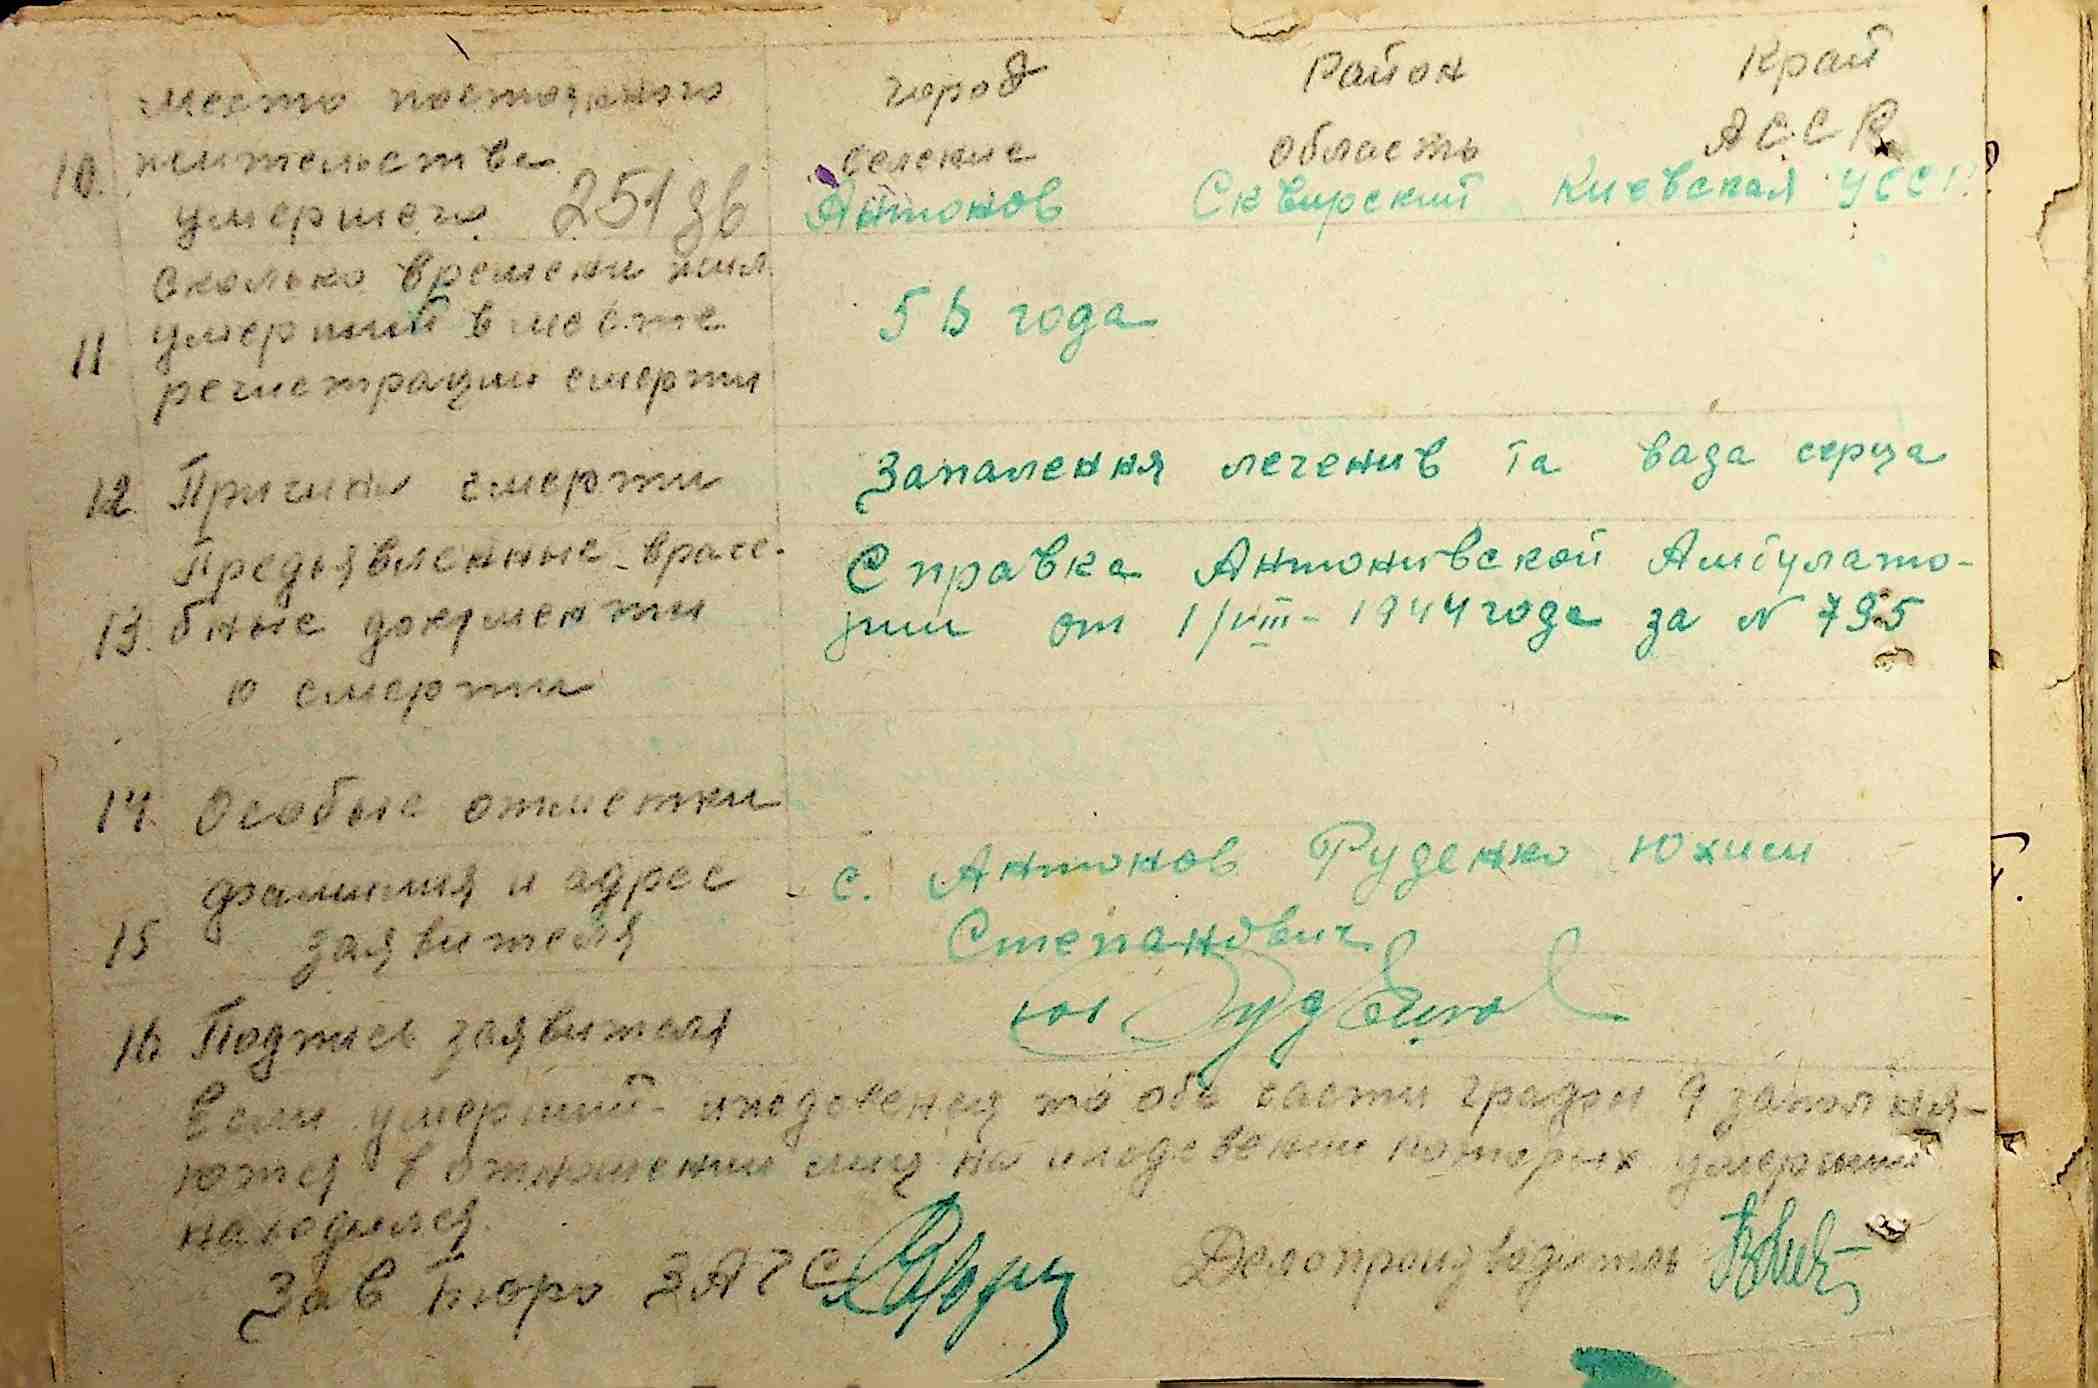 место постоянного город Район Край
10. жительства селение область АССР
умершего 251 зв Антонов Сквирский Киевская УССР
Сколько времени жил
11 умерший в месте 53 года
регистрации смерти
12. Причины смерти Запалення легенив та вада серца
Предъявленные враче- Справка Антонивской Амбулато-
13. бные документи рии от 1/VIII - 1944 года за N 795
о смерти
14. Особые отметки
фамилия и адрес с. Антонов Руденко Юхим
15 заявителя Степанович
16 Подпись заявителя Руденко
Если умерший - иждевенец то обе части графы 9 заполня-
ются в отношении лиц на иждевении которых умерший
находился.
Зав Бюро ЗАГС Делопроизводитель